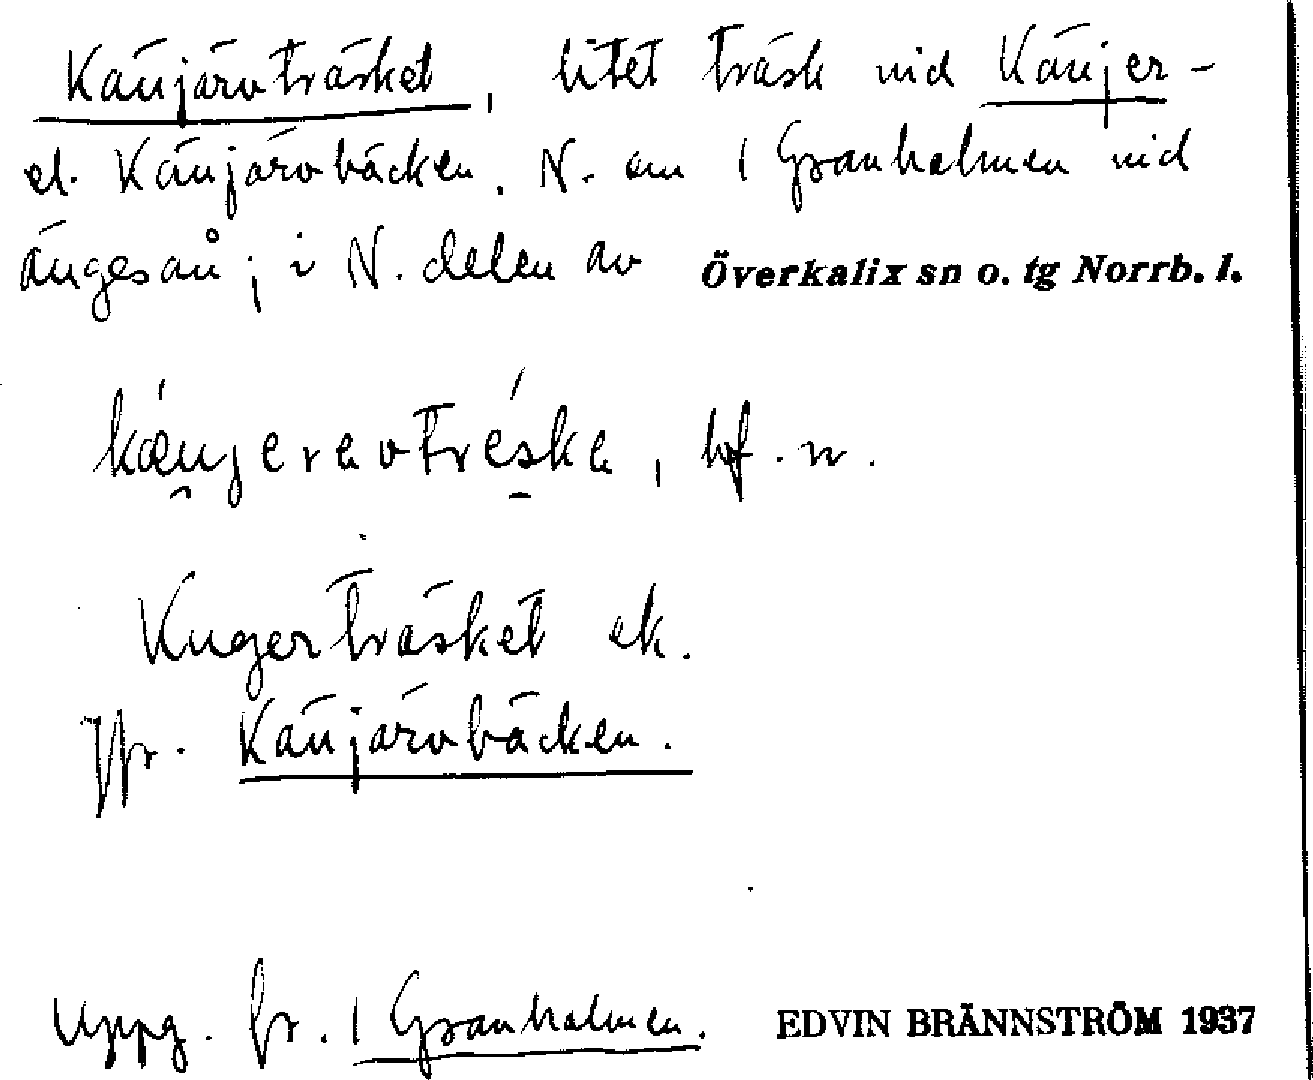 Känjärvträsket, litet träsk vid Känjer-
el. Känjärvbäcken. N. om 1 Granholmen vid
ängesån; i N. delen av Överkalix sn o. tg Norrb. l.
bf. n.
Kngerträsket ek.
Jfr. Känjärvbäcken.
Uppg. fr. 1 Granholmen. EDVIN BRÄNNSTRÖM 1937